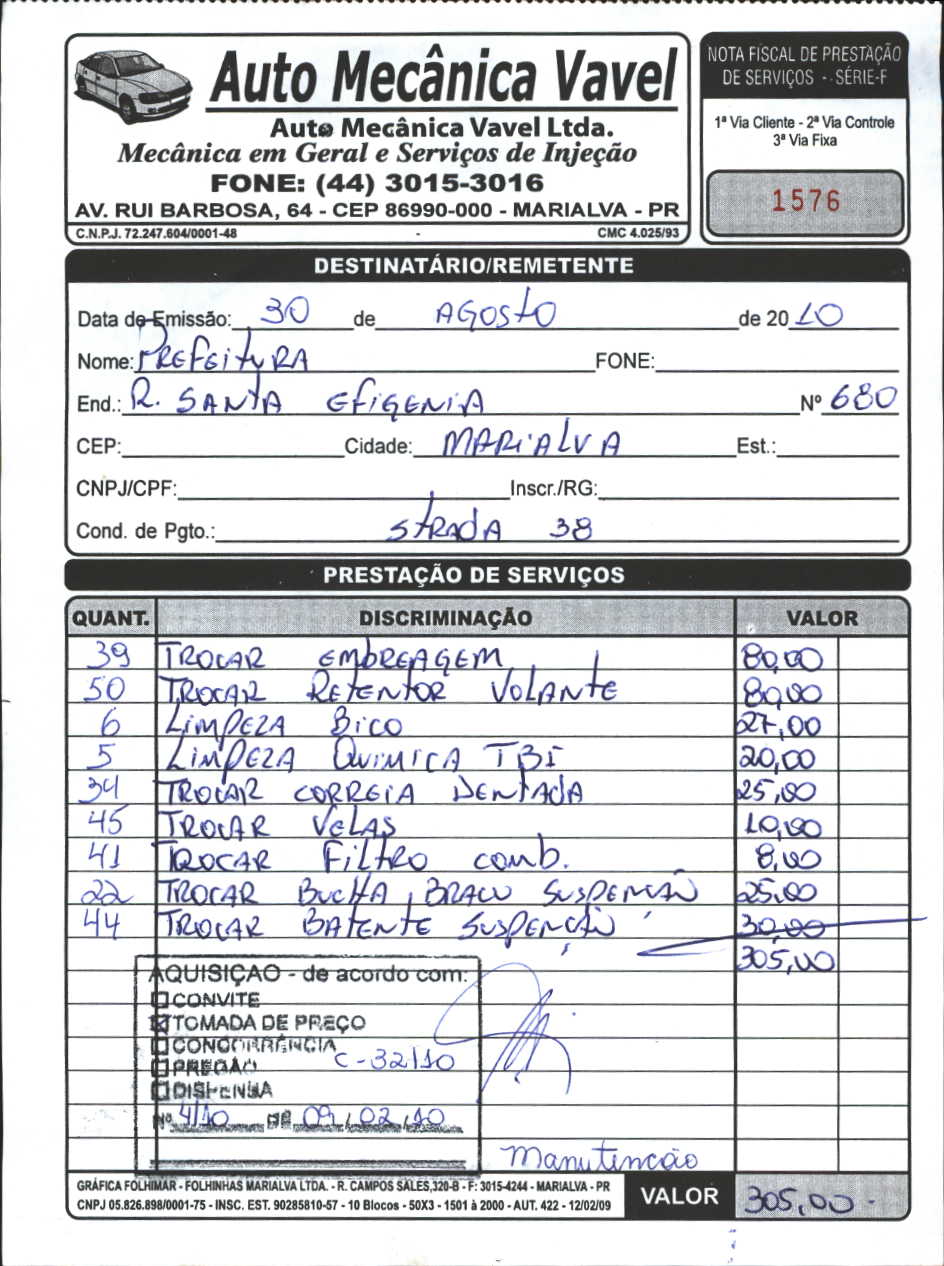 Auto Mecânica Vavel
Auto Mecânica Vavel Ltda.
Mecânica em Geral e Serviços de Injeção
FONE: (44) 3015-3016
AV. RUI BARBOSA, 64 - CEP 86990-000 - MARIALVA - PR
C.N.P.J. 72.247.604/0001-48 CMC 4.025/93
NOTA FISCAL DE PRESTAÇÃO
DE SERVIÇOS - SÉRIE-F
1ª Via Cliente - 2ª Via Controle
3ª Via Fixa
1576
DESTINATÁRIO/REMETENTE
Data de Emissão: 30 de AGOSTO de 2010
Nome: PREFEITURA FONE:
End.: R. SANTA EFIGENIA Nº 680
CEP: Cidade: MARIALVA Est.:
CNPJ/CPF: Inscr./RG:
Cond. de Pgto.: STRADA 38
PRESTAÇÃO DE SERVIÇOS
QUANT. DISCRIMINAÇÃO VALOR
39 TROCAR EMBREAGEM 80,00
50 TROCAR RETENTOR VOLANTE 80,00
6 LIMPEZA BICO 27,00
5 LIMPEZA QUIMICA TBI 20,00
34 TROCAR CORREIA DENTADA 25,00
45 TROCAR VELAS 10,00
41 TROCAR FILTRO COMB. 8,00
22 TROCAR BUCHA BRAÇO SUSPENCÃO 25,00
44 TROCAR BATENTE SUSPENCÃO 30,00
305,00
AQUISIÇAO - de acordo com:
CONVITE
TOMADA DE PREÇO
CONCORRÊNCIA
PREGÃO C-32/10
DISPENSA
Nº 4/10 DE 09/02/10
Manutencão
GRÁFICA FOLHIMAR - FOLHINHAS MARIALVA LTDA. - R. CAMPOS SALES,320-B - F: 3015-4244 - MARIALVA - PR
CNPJ 05.826.898/0001-75 - INSC. EST. 90285810-57 - 10 Blocos - 50X3 - 1501 à 2000 - AUT. 422 - 12/02/09
VALOR 305,00-